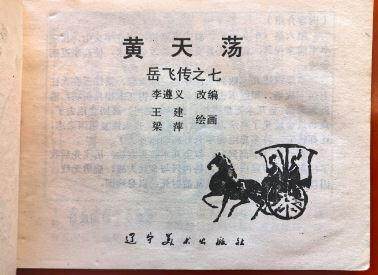 黄天荡
岳飞传之七
李遵义 改编
王建
梁萍 绘画
辽宁美术出版社